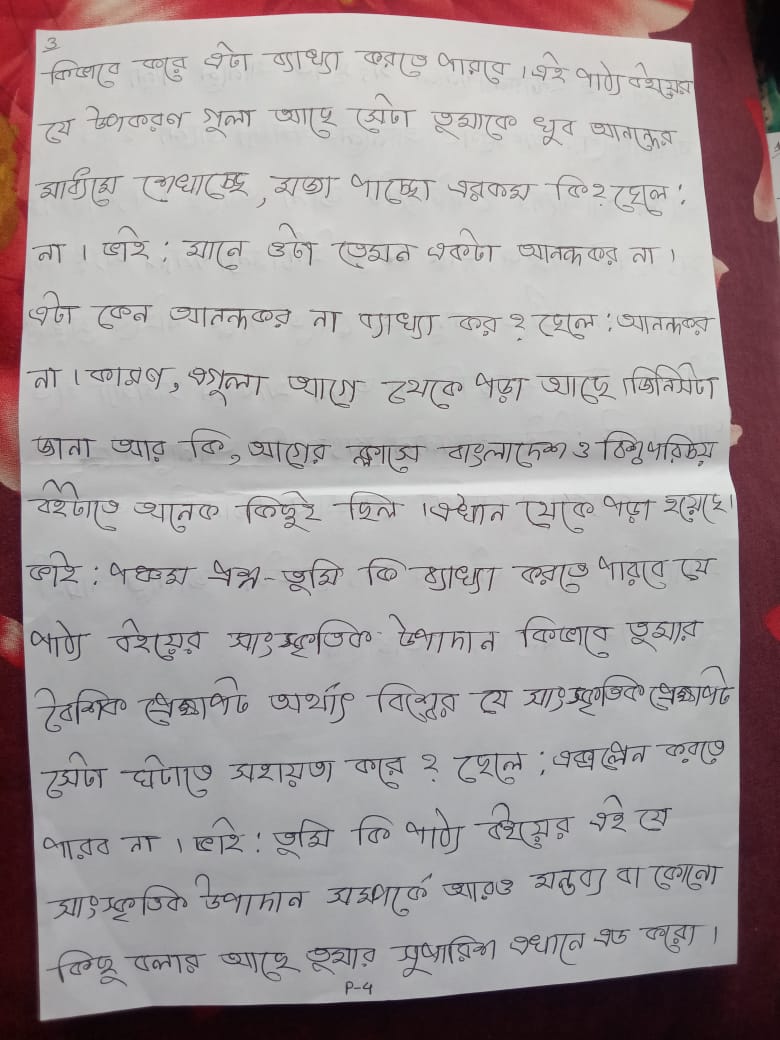 3
কিভাবে করে এটা ব্যাখ্যা করতে পারবে । এই পাঠ্য বইয়ের
যে উপকরণ গুলা আছে সেটা তুমাকে খুব আনন্দের
মাধ্যমে শেখাচ্ছে, মজা পাচ্ছো এরকম কি? ছেলে :
না । ভাই : মানে ওটা তেমন একটা আনন্দকর না ।
এটা কেন আনন্দকর না ব্যাখ্যা কর ? ছেলে : আনন্দকর
না । কারণ, এগুলা আগে থেকে পড়া আছে । জিনিসটা
জানা আর কি, আগের ক্লাসে বাংলাদেশ ও বিশ্বপরিচয়
বইটাতে অনেক কিছুই ছিল । এখান থেকে পড়া হয়েছে।
ভাই : পঞ্চম প্রশ্ন - তুমি কি ব্যাখ্যা করতে পারবে যে
পাঠ্য বইয়ের সাংস্কৃতিক উপাদান কিভাবে তুমার
বৈশ্বিক প্রেক্ষাপট অর্থাৎ বিশ্বের যে সাংস্কৃতিক প্রেক্ষাপট
সেটা ঘটাতে সহায়তা করে ? ছেলে : এক্সপ্লেন করতে
পারব না । ভাই : তুমি কি পাঠ্য বইয়ের এই যে
সাংস্কৃতিক উপাদান সম্পর্কে আরও মন্তব্য বা কোনো
কিছু বলার আছে তুমার সুপারিশ এখানে এড করো ।
P-4